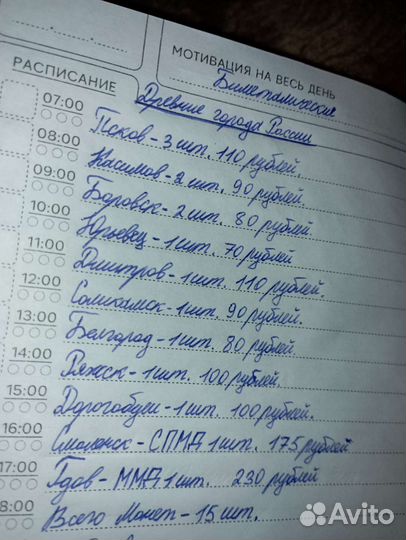 МОТИВАЦИЯ НА ВЕСЬ ДЕНЬ
Биметалические
РАСПИСАНИЕ
Древние города России
07:00
Псков - 3 шт. 110 рублей.
08:00
Касимов - 2 шт. 90 рублей
09:00
Боровск - 2 шт. 80 рублей.
10:00
Юрьевец - 1 шт. 70 рублей
11:00
Дмитров - 1 шт. 110 рублей.
12:00
Соликамск - 1 шт. 90 рублей.
13:00
Белгород - 1 шт. 80 рублей
14:00
Ряжск - 1 шт. 100 рублей.
15:00
Дорогобуж - 1 шт. 100 рублей.
16:00
Смоленск - СПМД 1 шт. 175 рублей
17:00
Гдов - ММД 1 шт. 230 рублей
8:00
Всего Монет - 15 шт.
Avito